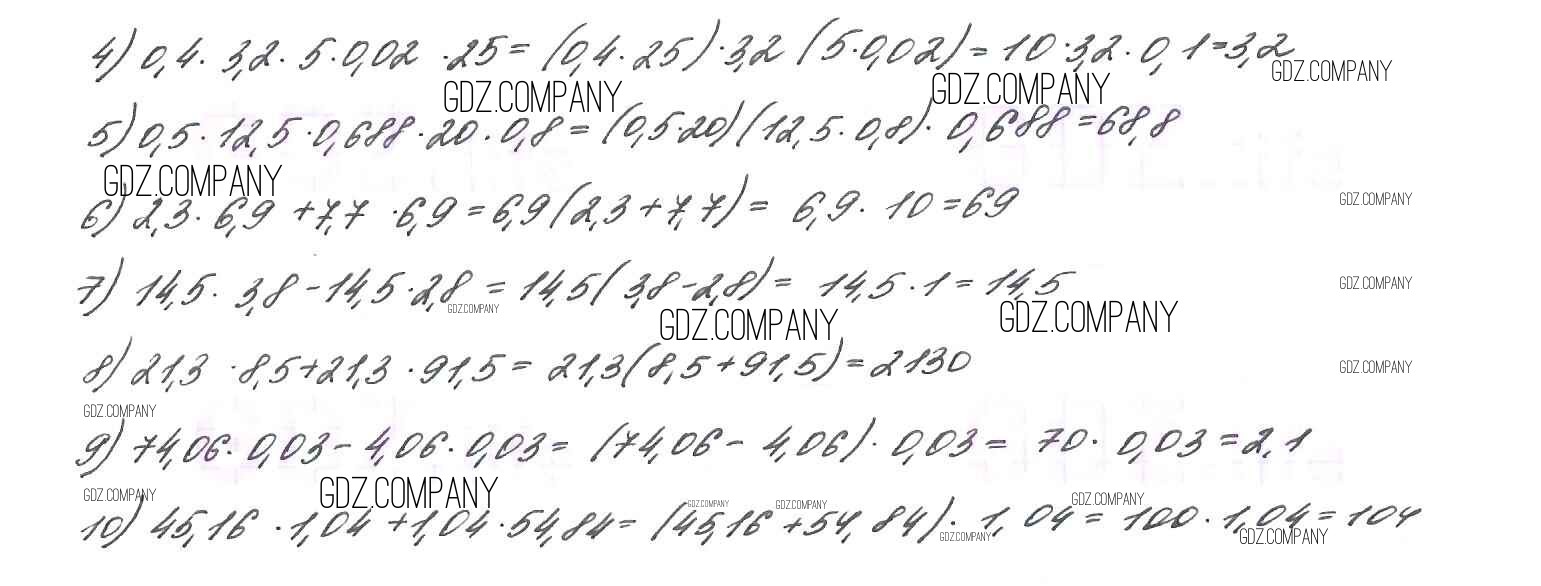 4) 0,4 · 3,2 · 5 · 0,02 · 25 = (0,4 · 25) · 3,2 (5 · 0,02) = 10 · 3,2 · 0,1 = 3,2
GDZ.COMPANY
GDZ.COMPANY GDZ.COMPANY
5) 0,5 · 12,5 · 0,688 · 20 · 0,8 = (0,5 · 20) (12,5 · 0,8) · 0,688 = 68,8
GDZ.COMPANY
6) 2,3 · 6,9 + 7,7 · 6,9 = 6,9 (2,3 + 7,7) = 6,9 · 10 = 69
GDZ.COMPANY
7) 14,5 · 3,8 - 14,5 · 2,8 = 14,5 (3,8 - 2,8) = 14,5 · 1 = 14,5
GDZ.COMPANY
GDZ.COMPANY GDZ.COMPANY GDZ.COMPANY
8) 21,3 · 8,5 + 21,3 · 91,5 = 21,3 (8,5 + 91,5) = 2130
GDZ.COMPANY
GDZ.COMPANY
9) 74,06 · 0,03 - 4,06 · 0,03 = (74,06 - 4,06) · 0,03 = 70 · 0,03 = 2,1
GDZ.COMPANY GDZ.COMPANY GDZ.COMPANY GDZ.COMPANY GDZ.COMPANY
10) 45,16 · 1,04 + 1,04 · 54,84 = (45,16 + 54,84) · 1,04 = 100 · 1,04 = 104
GDZ.COMPANY GDZ.COMPANY